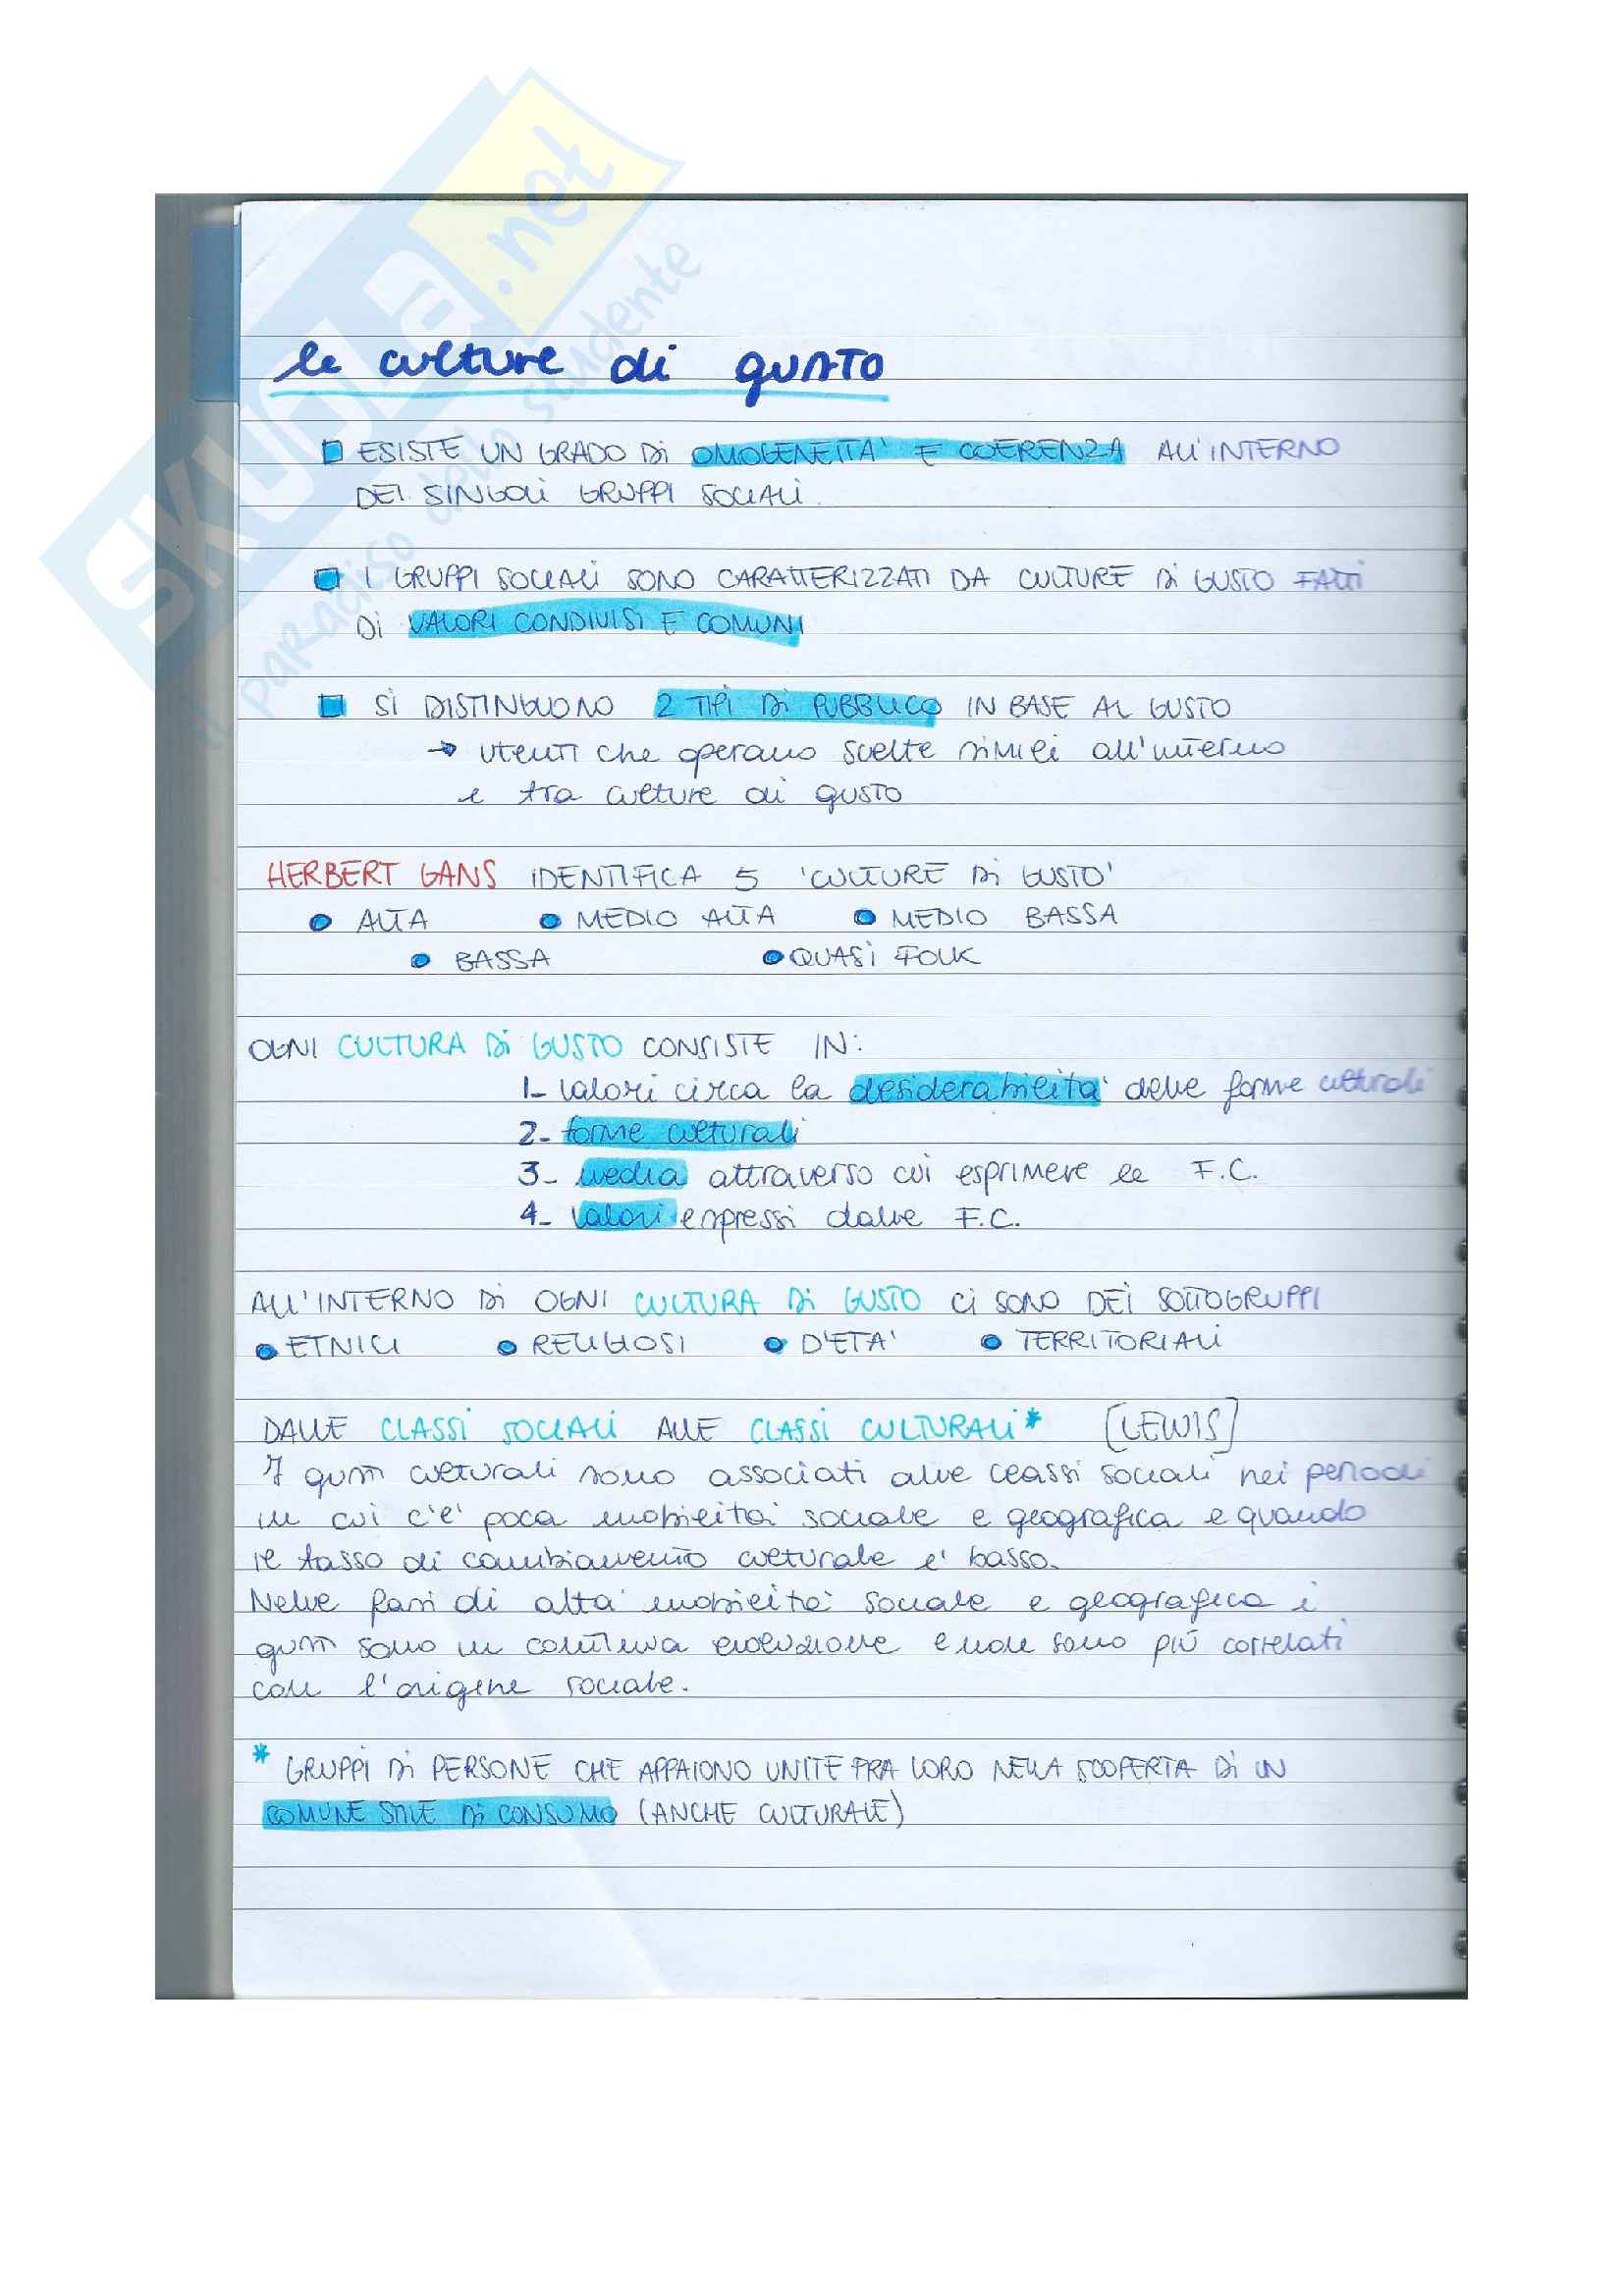 SKUOLA.net
il paradiso dello studente
le culture di gusto
ESISTE UN GRADO Di OMOGENEITA' E COERENZA ALL'INTERNO
DEI SINGOLI GRUPPI SOCIALI.
I GRUPPI SOCIALI SONO CARATTERIZZATI DA CULTURE Di GUSTO FATTI
Di VALORI CONDIVISI E COMUNI
SI DISTINGUONO 2 TIPI Di PUBBLICO IN BASE AL GUSTO
→ UTENTI che operano scelte simili all'interno
e tra culture di gusto
HERBERT GANS IDENTIFICA 5 'CULTURE Di GUSTO'
• ALTA • MEDIO ALTA • MEDIO BASSA
• BASSA • QUASI FOLK
OGNI CULTURA Di GUSTO CONSISTE IN:
1- valori circa la desiderabilita' delle forme culturali
2- forme culturali
3- media attraverso cui esprimere le F.C.
4- valori espressi dalle F.C.
ALL'INTERNO Di OGNI CULTURA Di GUSTO Ci SONO DEI SOTTOGRUPPI
• ETNICI • RELIGIOSI • D'ETA' • TERRITORIALI
DALLE CLASSI SOCIALI ALLE CLASSI CULTURALI* [LEWIS]
I gusti culturali sono associati alle classi sociali nei periodi
in cui c'e' poca mobilita' sociale e geografica e quando
il tasso di cambiamento culturale e' basso.
Nelle fasi di alta mobilita' sociale e geografica i
gusti sono in continua evoluzione e non sono più correlati
con l'origine sociale.
* GRUPPI Di PERSONE CHE APPAIONO UNITE FRA LORO NELLA SCOPERTA Di UN
COMUNE STILE Di CONSUMO (ANCHE CULTURALE)